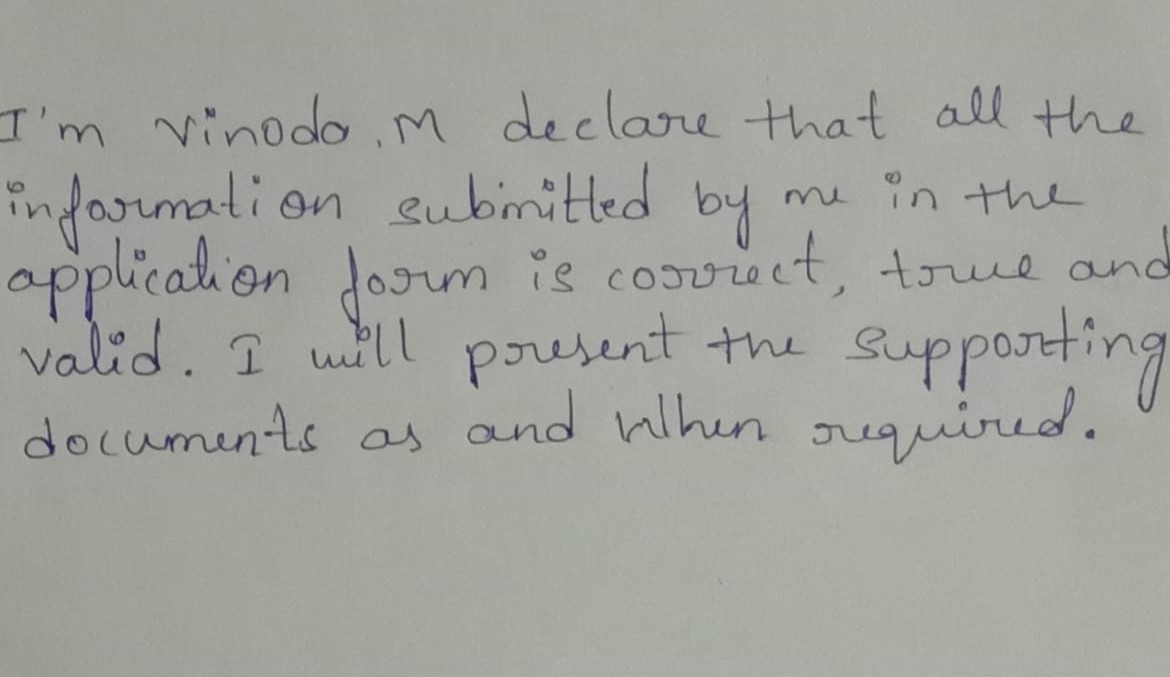 I'm vinoda.M declare that all the
information submitted by me in the
application form is correct, true and
valid. I will present the supporting
documents as and When required.